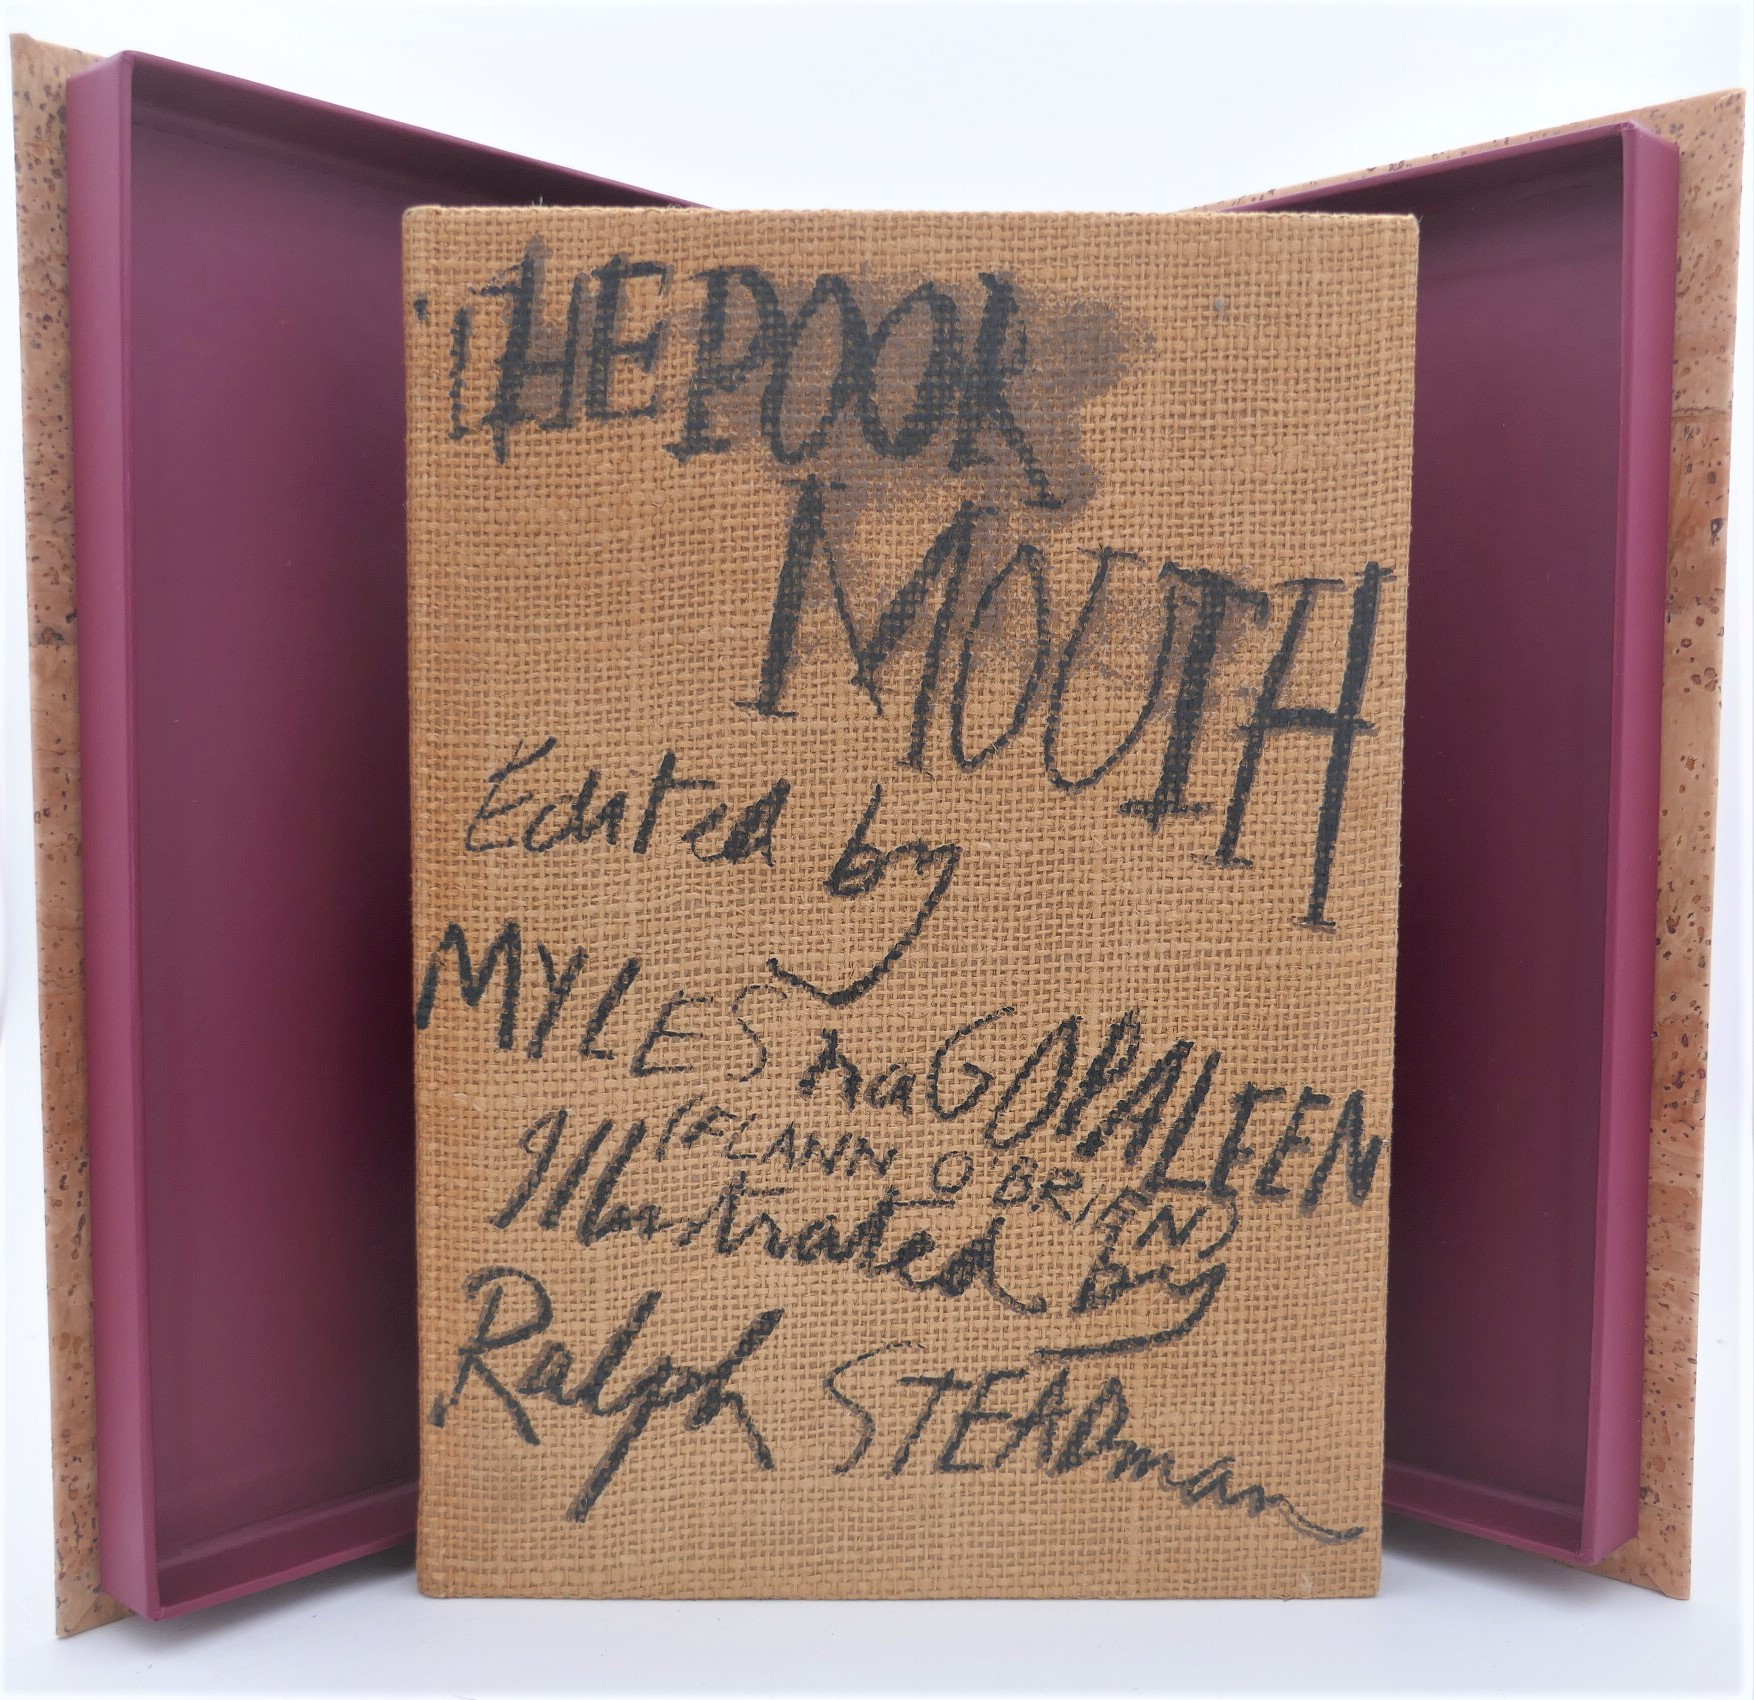 THE POOR
MOUTH
Edited by
MYLES na GOPALEEN
(FLANN O'BRIEN)
Illustrated by
Ralph STEADman